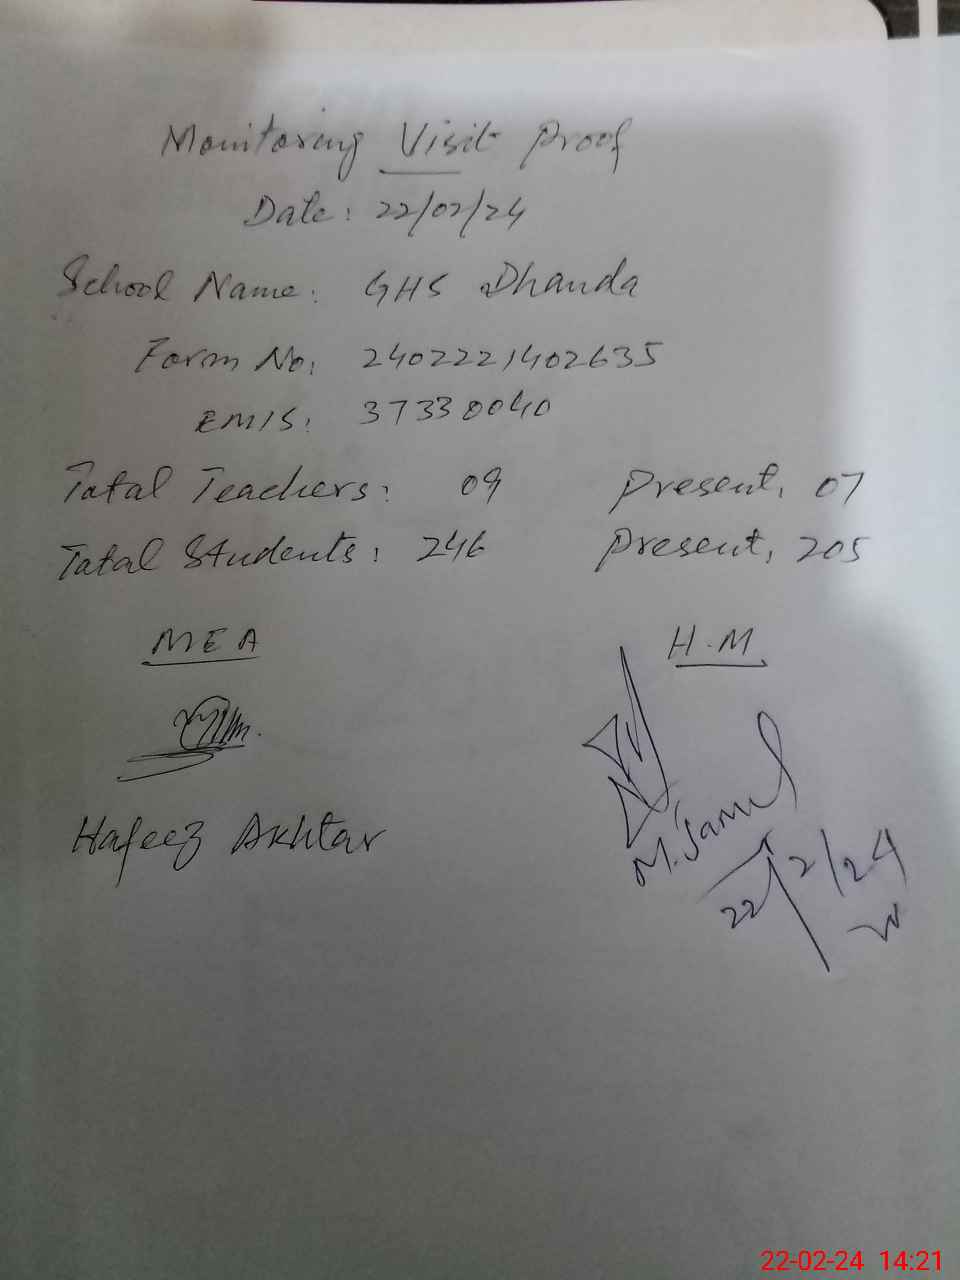 Monitoring Visit Proof
Date: 22/02/24
School Name: GHS Dhanda
Form No: 2402221402635
EMIS: 37330040
Total Teachers: 09 Present, 07
Total Students: 246 Present, 205
MEA H.M
Hafeez Akhtar
22/2/24
22-02-24 14:21